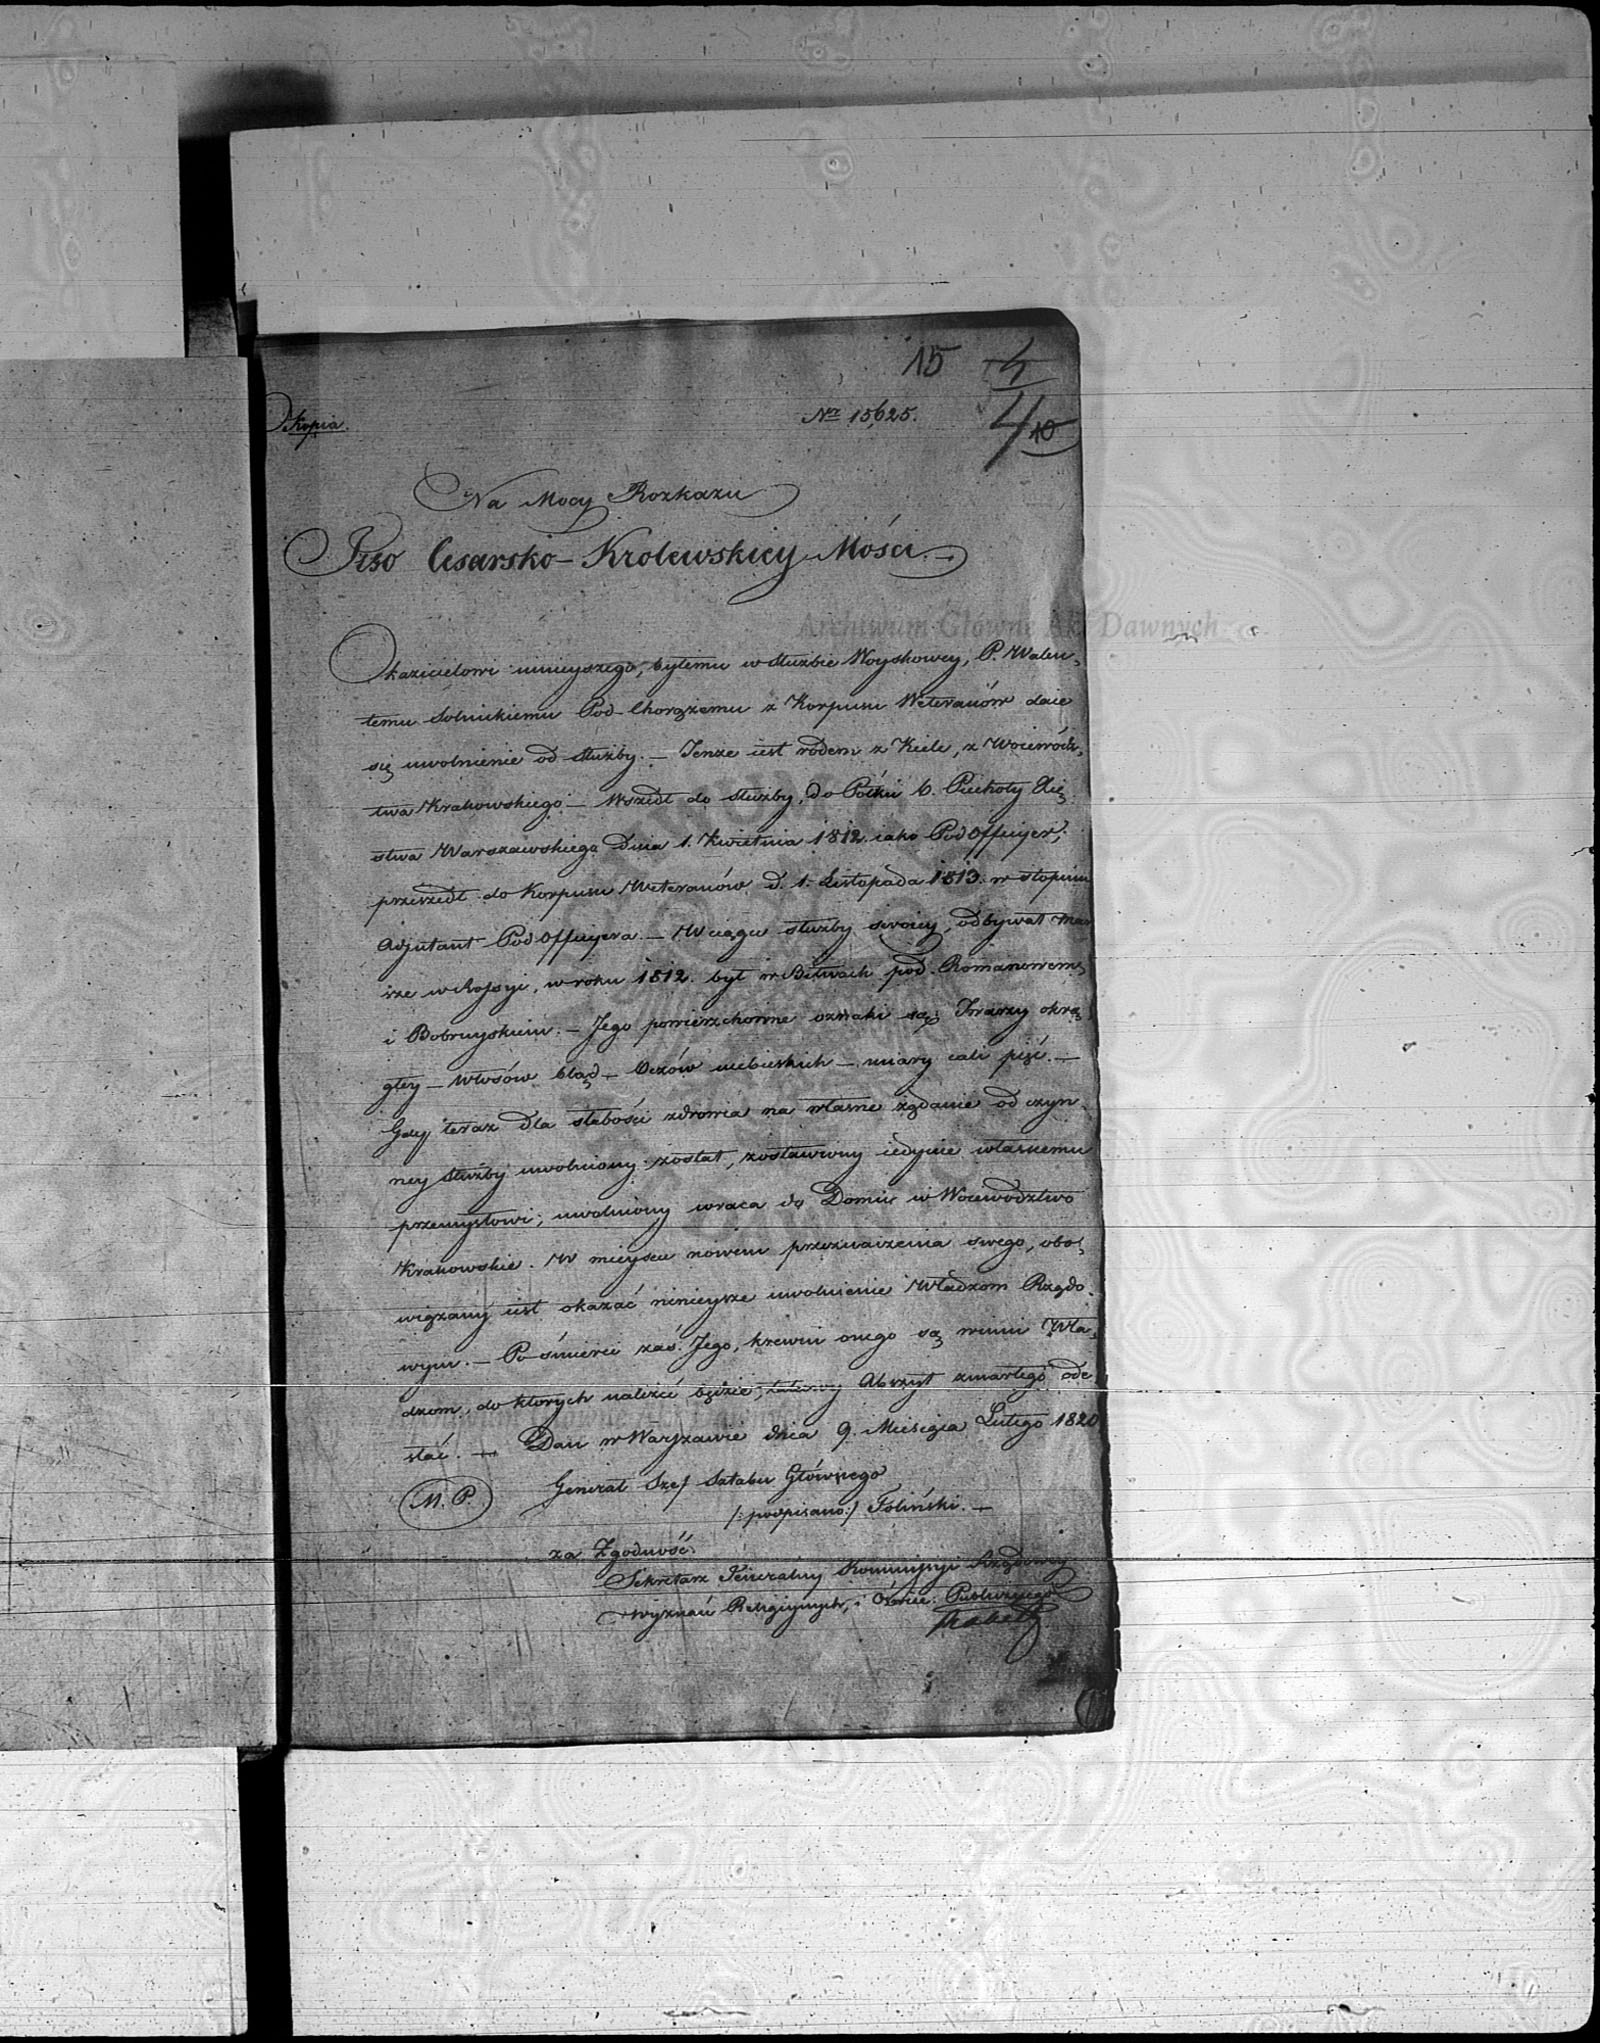 15
4
4 10
Kopia.
Nr 15,625.
Na Mocy Rozkazu
Jego Cesarsko-Krolewskiey Mości.
Okazicielowi ninieyszego, byłemu w służbie Woyskowey, P. Walen-
temu Solnickiemu Pod-Chorążemu z Korpusu Weteranów daie
się uwolnienie od służby. — Tenże iest rodem z Kielc, z Woiewódz-
twa Krakowskiego — Wszedł do służby, do Półku 6. Piechoty Xię-
stwa Warszawskiego Dnia 1. Kwietnia 1812. iako Podofficyer;
przeszedł do Korpusu Weteranów d. 1. Listopada 1813. w stopniu
Adjutant Podofficyera. — W ciągu służby swoiey, odbywał Mar-
sze w Rossyi, w roku 1812. był w Bitwach pod Romanowem,
i Bobruyskiem. — Jego powierzchowne oznaki są: Twarzy okrą-
głey — Włosów bląd — Oczów niebieskich — miary cali pięć. —
Gdy teraz dla słabości zdrowia na własne żądanie od czyn-
ney służby uwolniony został, zostawiony iedynie własnemu
przemysłowi; uwolniony wraca do Domu w Woiewodztwo
Krakowskie. W mieyscu nowem przeznaczenia swego, obo-
wiązany iest okazać ninieysze uwolnienie Władzom Rządo-
wym. — Po śmierci zaś Jego, krewni onego są winni Wła-
dzom, do ktorych należeć będzie, Abszyt zmarłego ode-
słać. — Dan w Warszawie dnia 9. Miesiąca Lutego 1820
Generał Szef Sztabu Głównego
M. P.
/:podpisano:/ Toliński. —
za Zgodność:
Sekretarz Jeneralny Kommissyi Rządowey
Wyznań Religiynych, i Oświec: Publicznego
Archiwum Główne Akt Dawnych